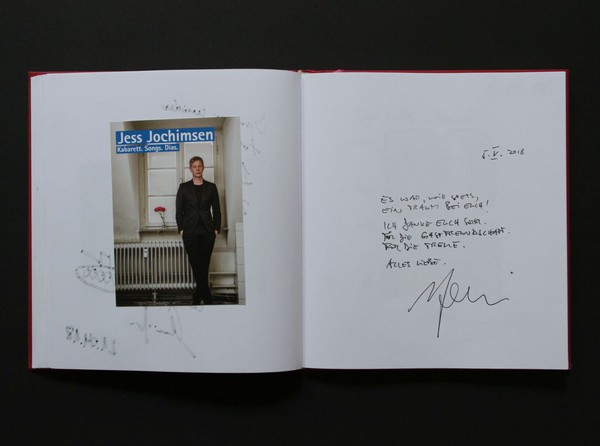 Jess Jochimsen
Kabarett. Songs. Dias.
5. V. 2018
ES WAR, WIE STETS,
EIN TRAUM BEI EUCH!
ICH DANKE EUCH SEHR.
FÜR DIE GASTFREUNDSCHAFT.
FÜR DIE TREUE.
ALLES LIEBE.